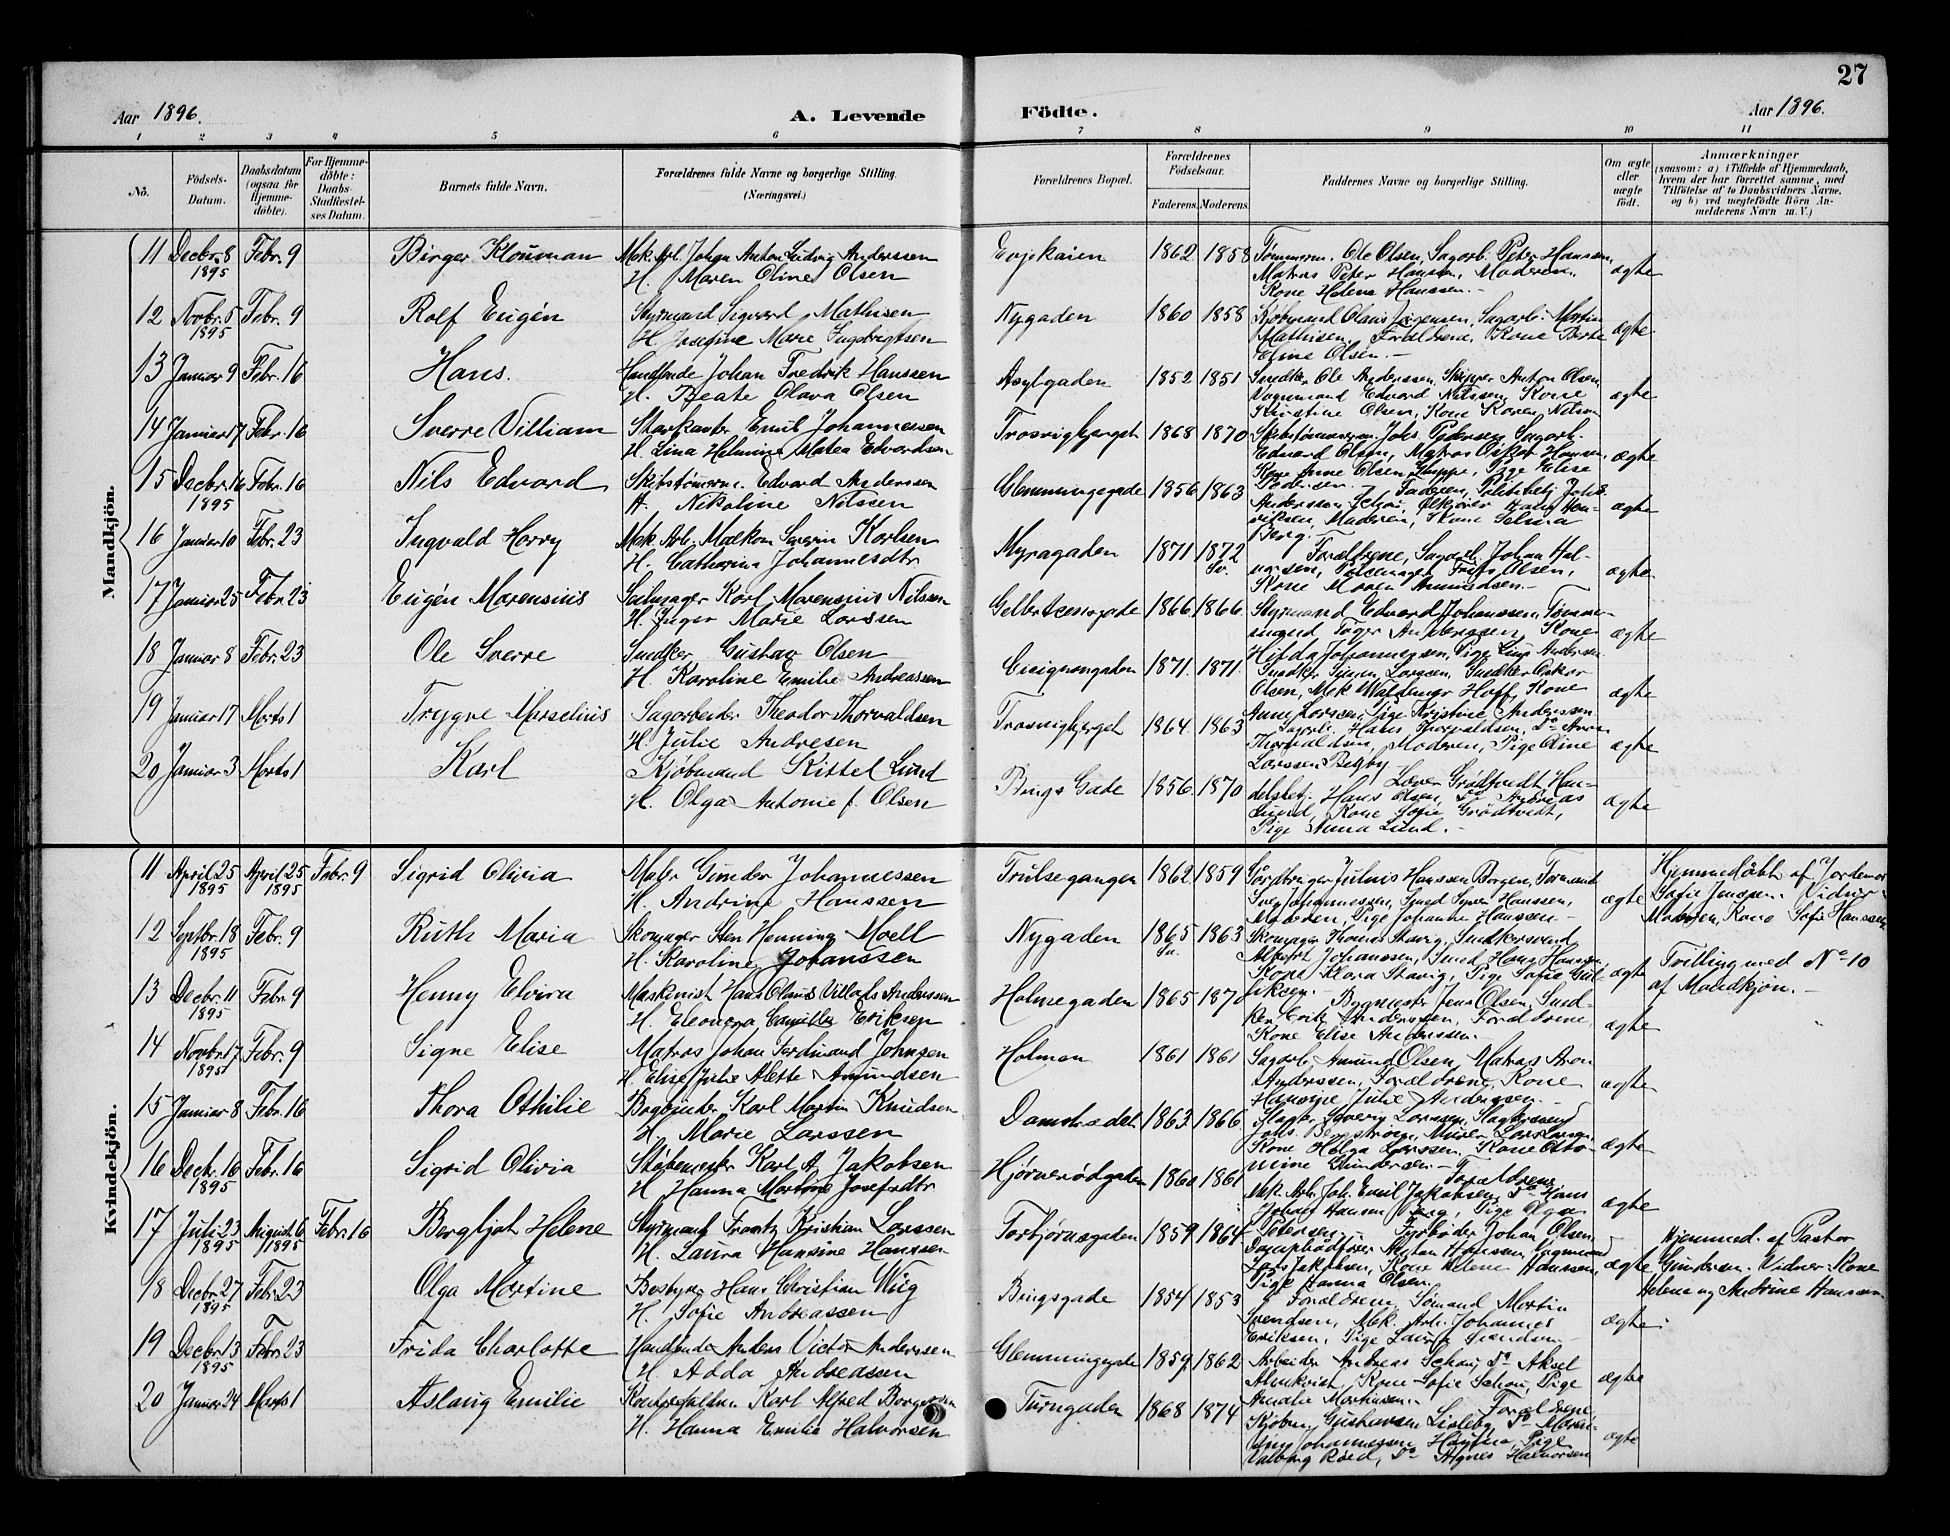 27
Aar 1896. A. Levende Födte. Aar 1896.
1 2 3 4 5 6 7 8 9 10 11
No. Födsels-Datum. Daabsdatum (ogsaa for Hjemmedöbte). For Hjemmedöbte: Daabs-Stadfæstelses Datum. Barnets fulde Navn. Forældrenes fulde Navne og borgerlige Stilling. (Næringsvei.) Forældrenes Bopæl. Forældrenes Födselsaar. Faderens. Moderens. Faddernes Navne og borgerlige Stilling. Om ægte eller uægte födt. Anmærkninger (saasom: a) i Tilfælde af Hjemmedaab, hvem der har forrettet samme, med Tilföielse af to Daabsvidners Navne, og b) ved uægtefödte Börn Anmelderens Navn m. V.)
Mandkjön.
11 Decbr. 8 1895 Febr. 9 Birger Klouman Mek. Arb. Johan Anton Ludvig Anderssen
H. Maren Oline Olsen Evjekaien 1862 1858 Tømmerm. Ole Olsen, Sagarb. Peter Hanssen,
Matros Peter Hanssen, Moderen,
Kone Helena Hanssen.- ægte
12 Novbr. 5 1895 Febr. 9 Rolf Eugén Styrmand Sigvard Mathisen
H. Josefine Marie Ingebrigtsen Nygaden 1860 1858 Kjøbmand Olaus Jørgensen, Sagarb. Martin
Mathisen, Forældrene, Kone Berte
Eline Olsen.- ægte
13 Januar 9 Febr. 16 Hans. Johan Fredrik Hanssen
H. Beate Olava Olsen Asylgaden 1852 1851 Snedker Ole Anderssen, Skipper Anton Olsen,
Vognmand Edvard Nilssen, Kone
Kirstine Olsen, Kone Karen Nilsen ægte
14 Januar 17 Febr. 16 Sverre Villiam Emil Johannessen
H. Lina Helmine Matea Edvardsen Trosvigbjerget 1868 1870 Skibstømmerm. Johs. Pedersen, Sagarb.
Edvard Olsen, Matros Oskar Hansen,
Kone Anne Olsen Gluppe, Pige Elise
Pedersen. ægte
15 Decbr. 16 1895 Febr. 16 Nils Edvard Skibstømerm. Edvard Anderssen
H. Nikoline Nilssen Glemmingegade 1856 1863 Faderen, Politibetj. Johs.
Anderssen Schau, Hans Hen-
riksen, Moderen, Kone Selma
Berg. ægte
16 Januar 10 Febr. 23 Ingvald Harry Mek. Arb. Malkom Severin Karlsen
H. Cathrina Johannesdtr Myragaden 1871 1872 Sv. Forældrene, Sagarb. Johan Hal-
vorsen, Frits Olsen,
Kone Maren Amundsen.- ægte
17 Januar 25 Febr. 23 Eugén Marensius Karl Marensius Nilssen
H. Inger Marie Larssen 1866 1866 Styrmand Edvard Johanssen, Tømmer-
mand Anderssen, Kone
Hilda Johannessen, Pige Anderssen ægte
18 Januar 8 Febr. 23 Ole Sverre Snedker Gustav Olsen
H. Karoline Emilie Andreassen Cicignongaden 1871. 1871. Snedker Simen Larssen, Snedker Oskar
Olsen, Mek. Waldemar Hoff, Kone
Anne Larssen, Pige Kristine Anderssen ægte
19 Januar 17 Marts 1 Trygve Marselius Sagarbeider Theodor Thorvaldsen
H. Julie Andresen Trosvigbjerget 1864. 1863 Sagarb. Hans Thorvaldsen, Do Anton
Thorvaldsen, Moderen, Pige Oline
Larssen Begby. ægte
20 Januar 3 Marts 1 Karl Kjøbmand Kittel Lund
H. Olga Antonie f. Olsen Bings Gade 1856. 1870 Grødtvedt, Han-
delsbetj. Hans Olsen, Do Andreas
Lund, Kone Sofie Grødtvedt,
Pige Anna Lund.- ægte
Kvindekjön.
11 April 25 1895 April 25 1895 Febr. 9 Sigrid Olivia Maler Gunder Johannessen
H. Andrine Hanssen Trulsegangen 1862 1859 Julius Hanssen Borgen, Formand
Johannessen, Smed Syver Hanssen,
Moderen, Pige Johanne Hanssen.- ægte Hjemmedöbt af Jordemor
Sofie Jenssen. Vidner:
Moderen, Kone Sofie Hanssen.
12 Septbr. 18 1895 Febr. 9 Ruth Maria Skomager Sten Henning Moell
H. Karoline Johanssen Nygaden 1865 Sv. 1863 Skomager Thomas Stavig, Snedkersvend
Albert Johanssen, Smed Hans Hanssen,
Kone Klara Stavig, Pige Sofie Gul-
liksen.- ægte Tvilling med No 10
af Mandkjøn.-
13 Decbr. 11 1895 Febr. 9 Henny Elvira Maskinist Hans Olaus Villads Andersen
H. Eleonora Camilla Eriksen Holmegaden 1865 1870 Bygmester Jens Olsen, Sned-
ker Erik Anderssen, Forældrene,
Kone Elise Anderssen. ægte
14 Novbr. 17 1895 Febr. 9 Signe Elise Matros Johan Ferdinand Johnsen
H. Elise Julie Alette Amundsen Holmen 1861 1861 Sagarb. Amund Olsen, Matros Aron
Anderssen, Forældrene, Kone
Hansine Julie Anderssen.- ægte
15 Januar 8 Febr. 16 Thora Othilie Bogbinder Karl Martin Knudsen
H. Marie Larssen Damstrædet 1863 1866 Slagter Severin Larssen, Slagtersvend
Johs. Bergstrøm, Murer Lars Larssen,
Kone Helga Larssen, Kone Otto-
mine Gundersen.- ægte
16 Decbr. 16 1895 Febr. 16 Sigrid Olivia Støbemester Karl A. Jakobsen
H. Hanna Martine Josefsdtr Hjørnerødgaden 1860 1861 Forældrene,
Mek. Arb. Joh. Emil Jakobsen, Do Hans
Johan Hansen Berg, Pige Olga
Petersen.- ægte
17 Juli 23 1895 August 6 1895 Febr. 16 Bergljot Helene Styrmand Frantz Kristian Larssen
H. Laura Hansine Hanssen Torbjørnsgaden 1859 1864 Fyrbøder Johan Olsen,
Dampbådfører Anton Hanssen, Vognmand
Lars Jakobsen, Kone Helene Hanssen,
Pige Hanna Olsen. ægte Hjemmed. af Pastor
Gundersen. Vidner: Kone
Helene og Andrine Hanssen.
18 Decbr. 27 1895 Febr. 23 Olga Martine Bestyrer Hans Christian Wiig
H. Sofie Andreassen Bingsgade 1854 1853 Forældrene, Sømand Martin
Svendsen, Mek. Arb. Johannes
Eriksen, Pige Laura Svendsen.- ægte
19 Decbr. 13 1895 Febr. 23 Frida Charlotte Anders Victor Anderssen
H. Adda Andreassen Glemmingegade 1859 1862 Arbeider Andreas Schau, Do Aksel
Almkvist, Kone Sofie Schau, Pige
Amalie Mathisen.- ægte
20 Januar 24 Marts 1 Aslaug Emilie Karl Alfred Borgersen
H. Hanna Emilie Halvorsen Turngaden 1868 1874 Forældrene
Kjøbm. Gustavsen Lisleby, Do
Johannessen, Pige
Valborg Røed, Do Agnes Halvorsen ægte